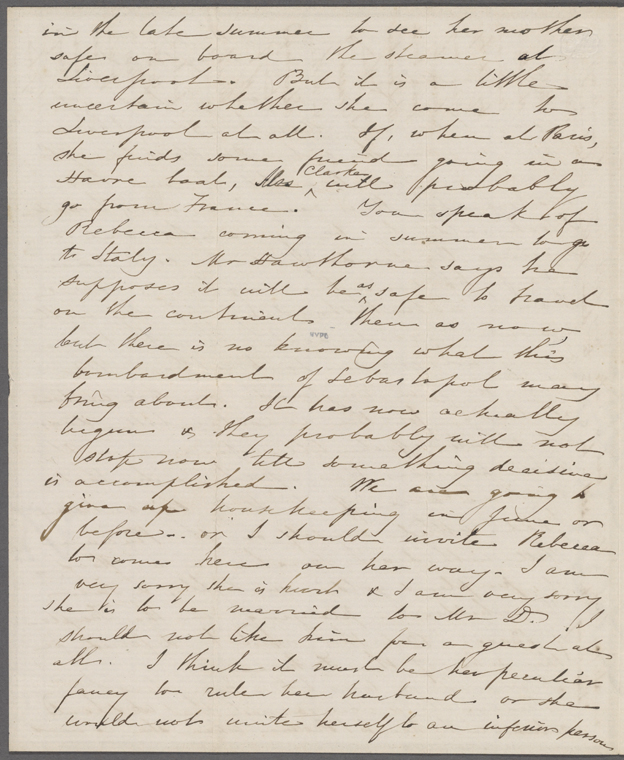 in the late summer to see her mother
safe on board the steamer at
Liverpool. But it is a little
uncertain whether she come to
Liverpool at all. If, when at Paris,
she finds some friend going in a
Havre boat, Mrs Clarke will probably
go from France. You speak of
Rebecca coming in summer to go
to Italy. Mr Hawthorne says he
supposes it will be as safe to travel
on the continent then as now,
but there is no knowing what this
bombardment of Sebastopol may
bring about. It has now actually
begun & they probably will not
stop now till something decisive
is accomplished. We are going to
give up housekeeping in June or
before - or I should invite Rebecca
to come here on her way. I am
very sorry she is hurt & I am very sorry
she is to be married to Mr D. I
should not like him for a guest at
all. I think it must be her peculiar
fancy to rule her husband or she
would not unite herself to an inferior person